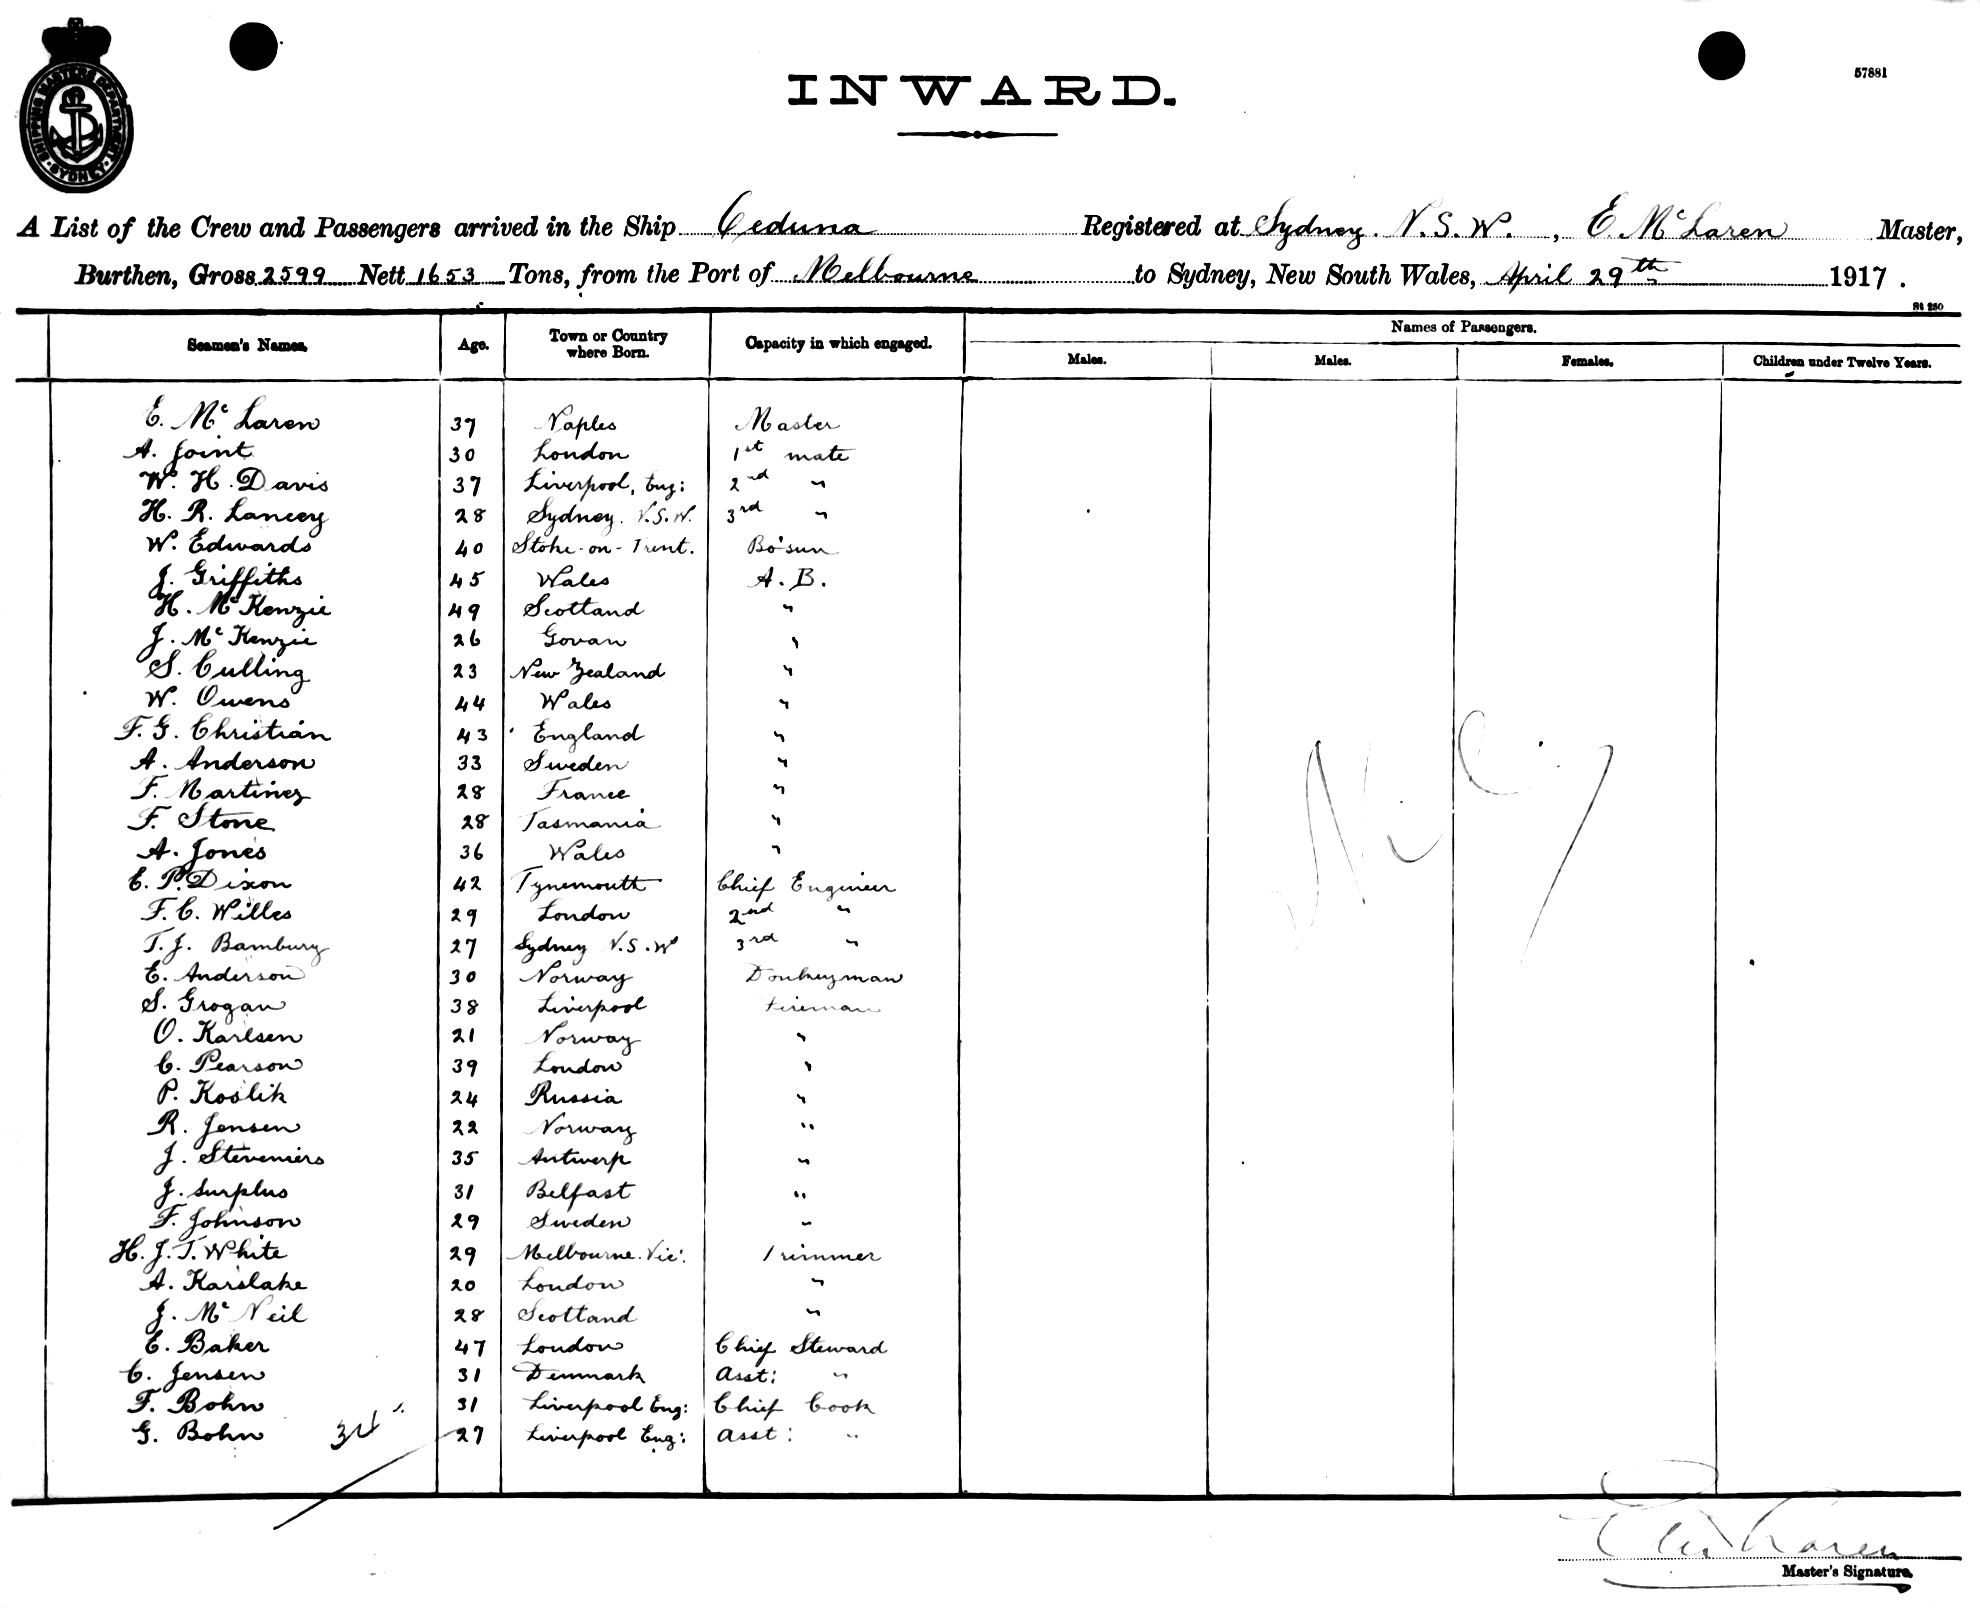 SHIPPING MASTERS DEPARTMENT
· SYDNEY ·
57881
INWARD.
A List of the Crew and Passengers arrived in the Ship Ceduna Registered at Sydney. N.S.W., E. McLaren Master,
Burthen, Gross 2599 Nett 1653 Tons, from the Port of Melbourne to Sydney, New South Wales, April 29th 1917.
St 250
Seamen's Names. Age. Town or Country where Born. Capacity in which engaged. Names of Passengers.
Males. Males. Females. Children under Twelve Years.
E. Mc Laren 37 Naples Master
A. Joint 30 London 1st mate
W. H. Davis 37 Liverpool, Eng: 2nd "
H. R. Lancey 28 Sydney. N.S.W. 3rd "
W. Edwards 40 Stoke-on-Trent. Bo'sun
J. Griffiths 45 Wales A. B.
H. Mc Kenzie 49 Scotland "
J. Mc Kenzie 26 Govan "
S. Culling 23 New Zealand "
W. Owens 44 Wales "
F. G. Christian 43 England "
A. Anderson 33 Sweden "
F. Martinez 28 France "
F. Stone 28 Tasmania "
A. Jones 36 Wales "
E. P. Dixon 42 Tynemouth Chief Engineer
F. C. Willes 29 London 2nd "
T. J. Bambury 27 Sydney N.S.W 3rd "
E. Anderson 30 Norway Donkeyman
S. Grogan 38 Liverpool Fireman
O. Karlsen 21 Norway "
C. Pearson 39 London "
P. Koslik 24 Russia "
R. Jensen 22 Norway "
J. Steveniers 35 Antwerp "
J. Surplus 31 Belfast "
F. Johnson 29 Sweden "
H. J. T. White 29 Melbourne. Vic: Trimmer
A. Karslake 20 London "
J. Mc Neil 28 Scotland "
E. Baker 47 London Chief Steward
C. Jensen 31 Denmark Asst: "
F. Bohn 31 Liverpool Eng: Chief Cook
G. Bohn 34 27 Liverpool Eng: Asst: "
E McLaren
Master's Signature.